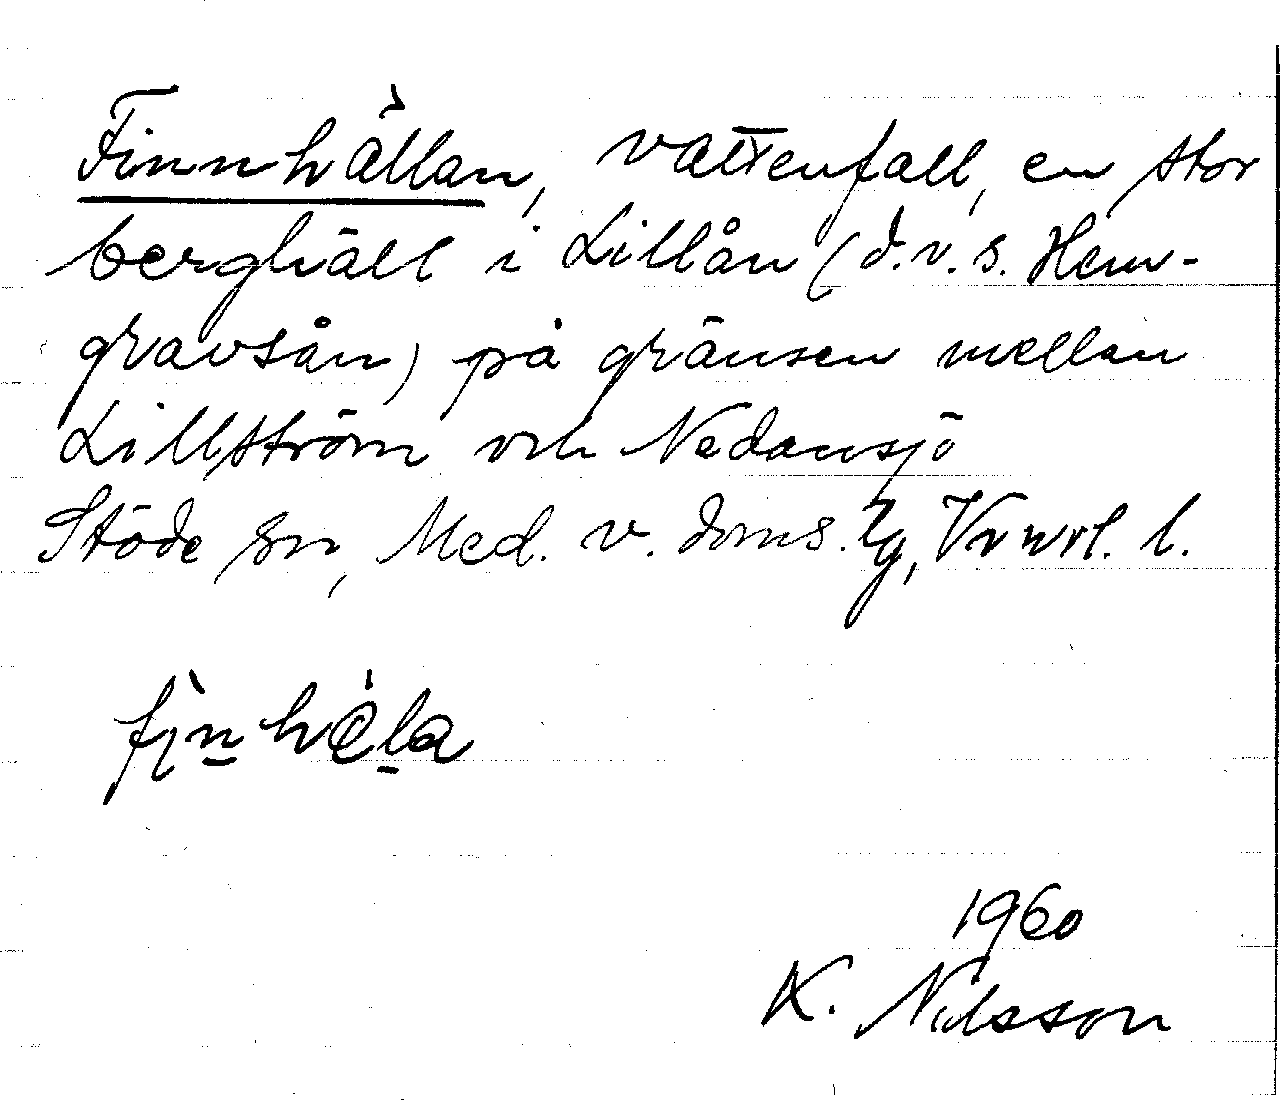 Finnhällan, vattenfall, en stor
berghäll i Lillån (d.v.s. Hem-
gravsån) på gränsen mellan
Lillström och Nedansjö
Stöde sn, Med. v. doms.
1960
K. Nilsson